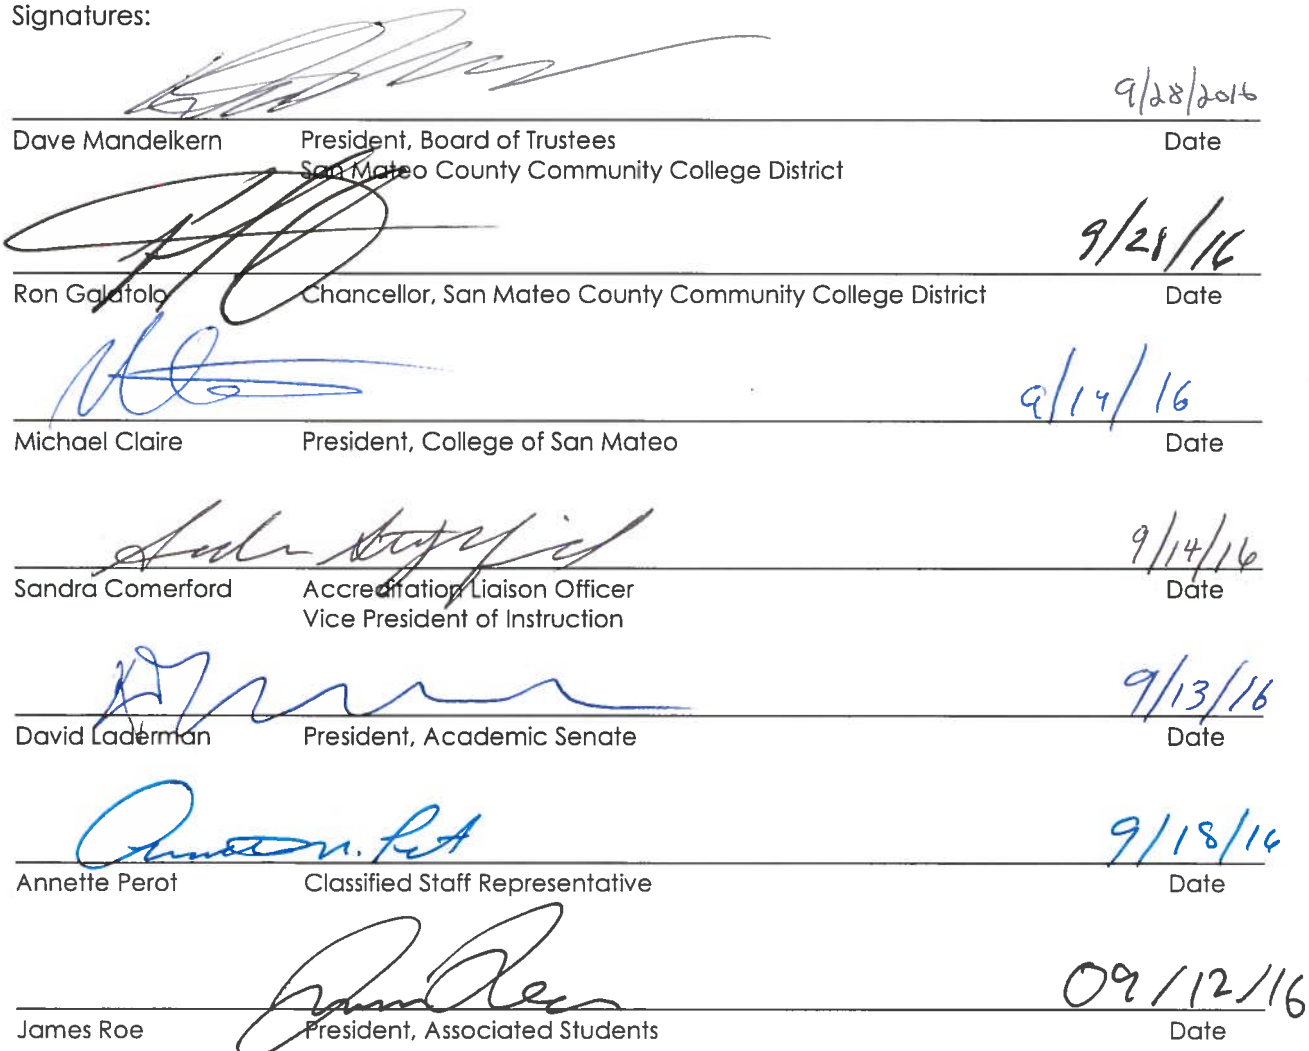 Signatures:
9/28/2016
Dave Mandelkern President, Board of Trustees Date
San Mateo County Community College District
9/28/16
Ron Galatolo Chancellor, San Mateo County Community College District Date
9/14/16
Michael Claire President, College of San Mateo Date
9/14/16
Sandra Comerford Accreditation Liaison Officer Date
Vice President of Instruction
9/13/16
David Laderman President, Academic Senate Date
9/18/16
Annette Perot Classified Staff Representative Date
09/12/16
James Roe President, Associated Students Date